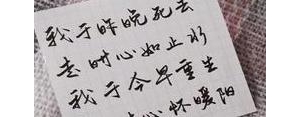 我于昨晚死去
走时心如止水
我于今早重生
心怀暖阳